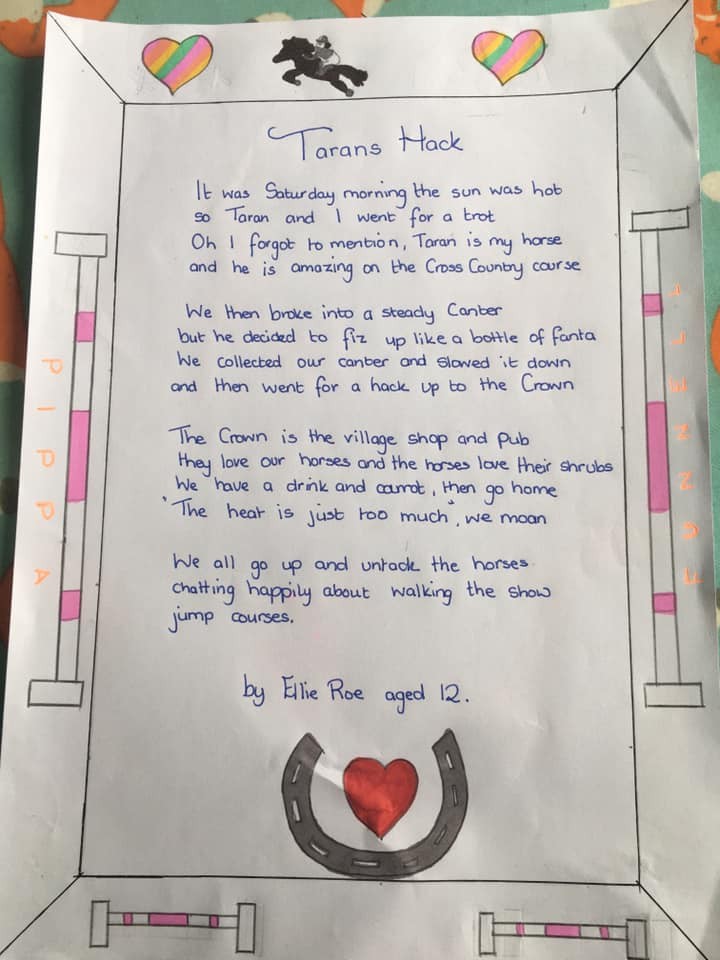 Tarans Hack
It was Saturday morning the sun was hot
so Taran and I went for a trot
Oh I forgot to mention, Taran is my horse
and he is amazing on the Cross Country course
We then broke into a steady Canter
but he decided to fiz up like a bottle of fanta
We collected our canter and slowed it down
and then went for a hack up to the Crown
The Crown is the village shop and Pub
they love our horses and the horses love their shrubs
We have a drink and carrot, then go home
"The heat is just too much", we moan
We all go up and untack the horses.
chatting happily about walking the show
jump courses.
by Ellie Roe aged 12.
PIPPA
FUNNELL